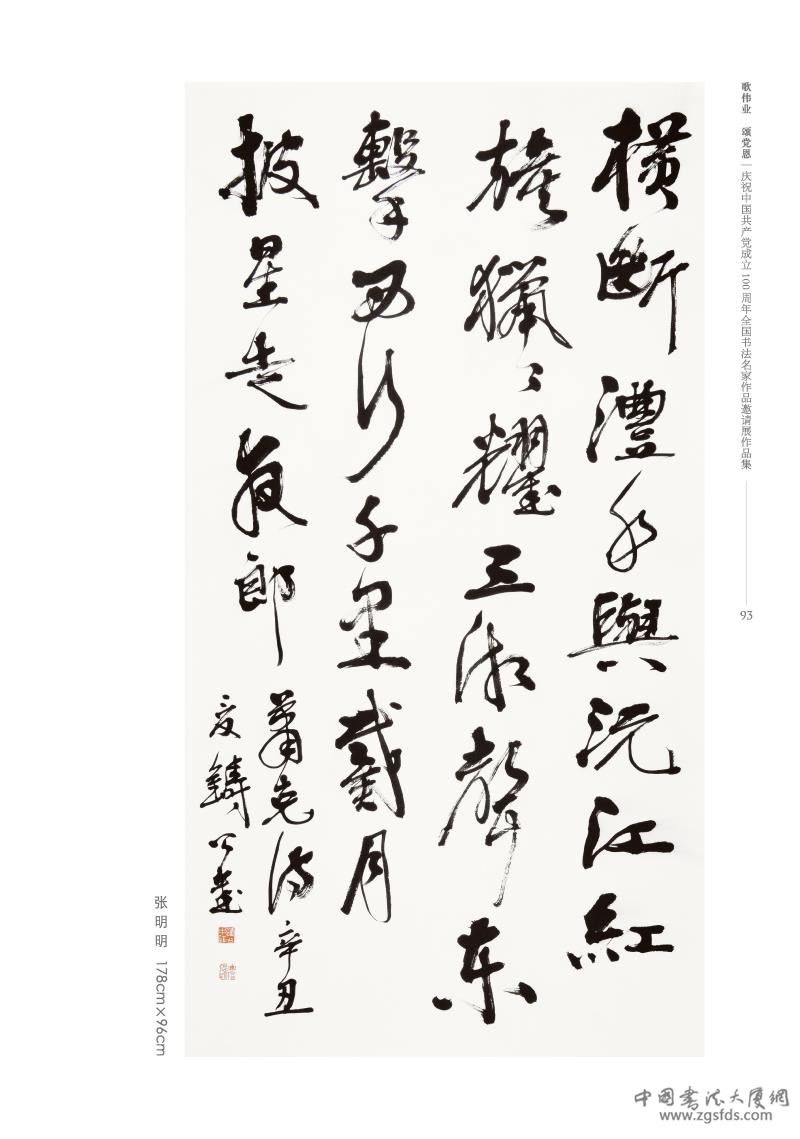 歌伟业 颂党恩 | 庆祝中国共产党成立100周年全国书法名家作品邀请展作品集
93
横斷澧水與沅江紅
旗獵〻耀三湘聲东
擊西行千里戴月
披星走夜郎
蕭克诗辛丑
夏鑄公書
张明明 178cm×96cm
中国书法大厦網
www.zgsfds.com